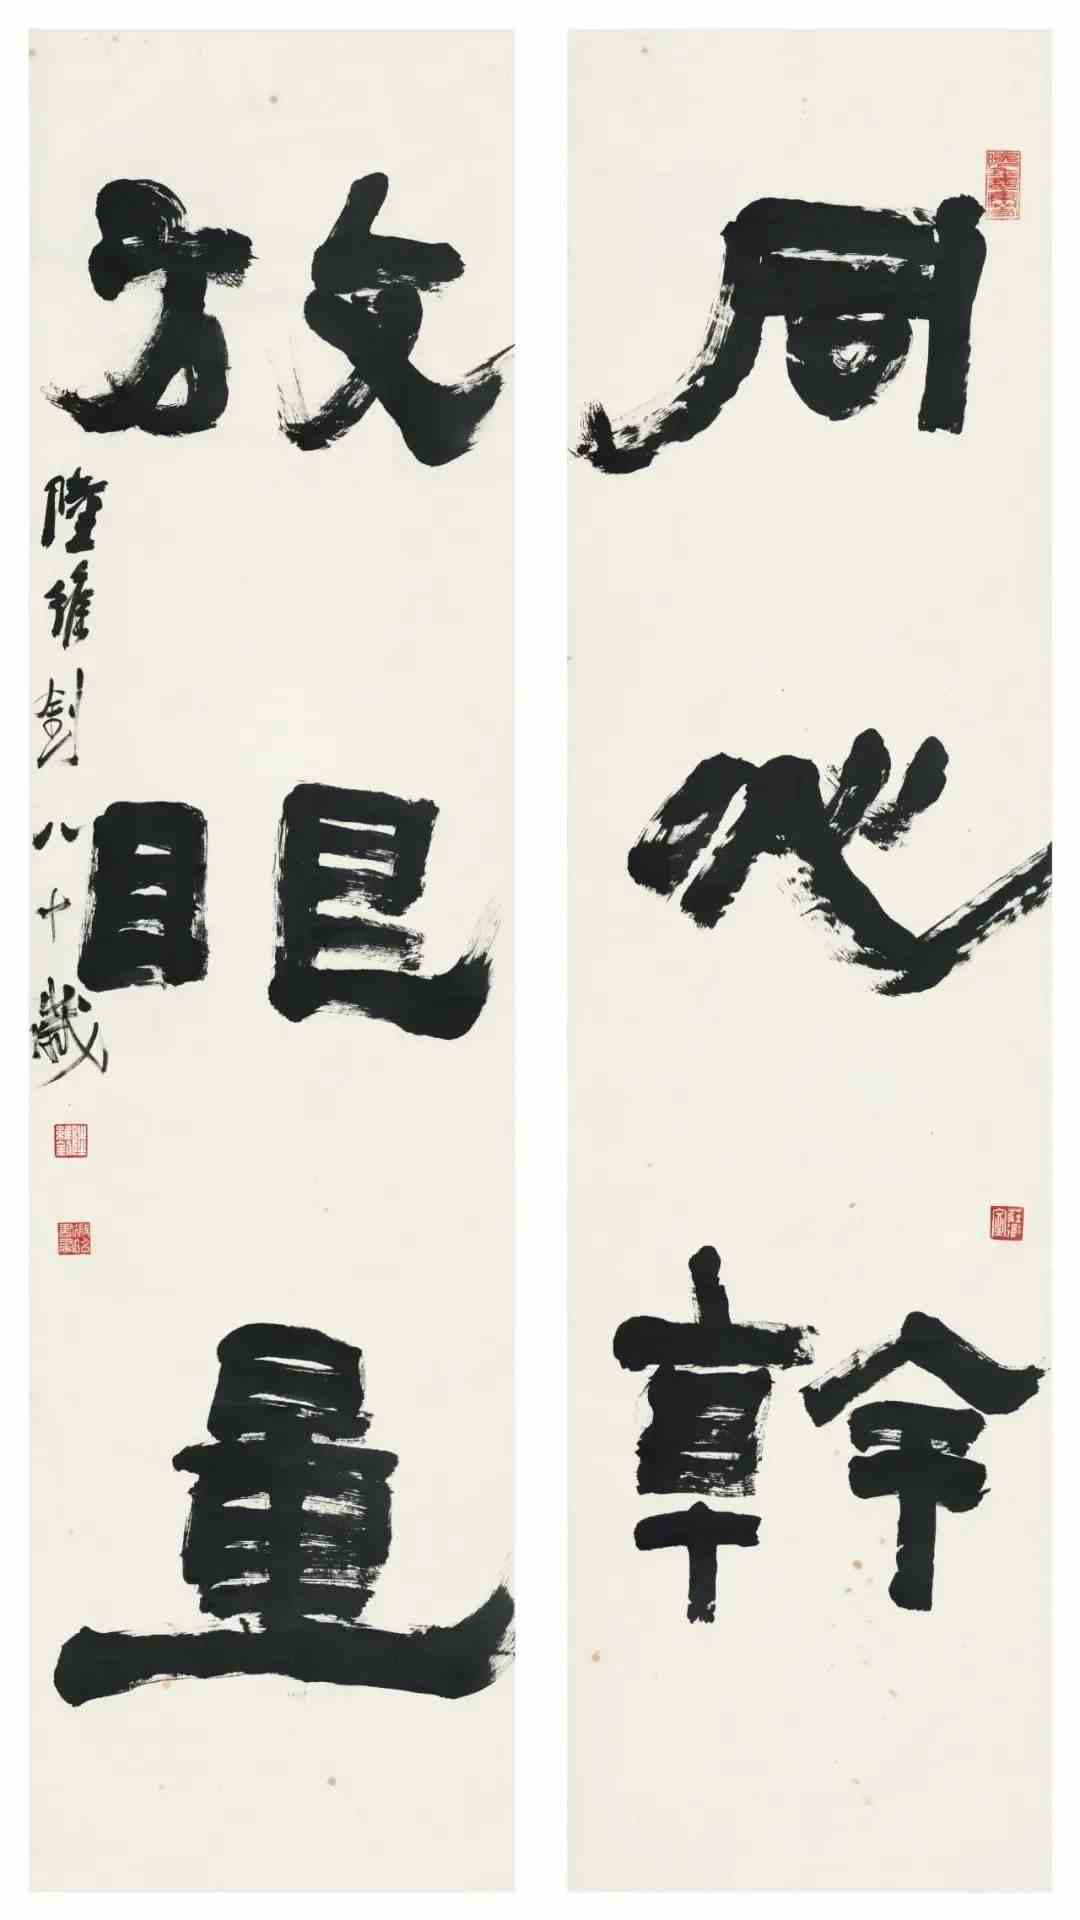 同心幹
放眼量
陸維釗八十歲